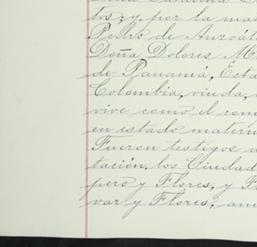 tos; y por la mat
Pedro de Anzoát
Doña Dolores M
de Panamá, Esta
Colombia, viuda,
vive como el com
en estado matrim
Fueron testigos d
tación, los Ciudad
pero y Flores, y F
var y Flores, am